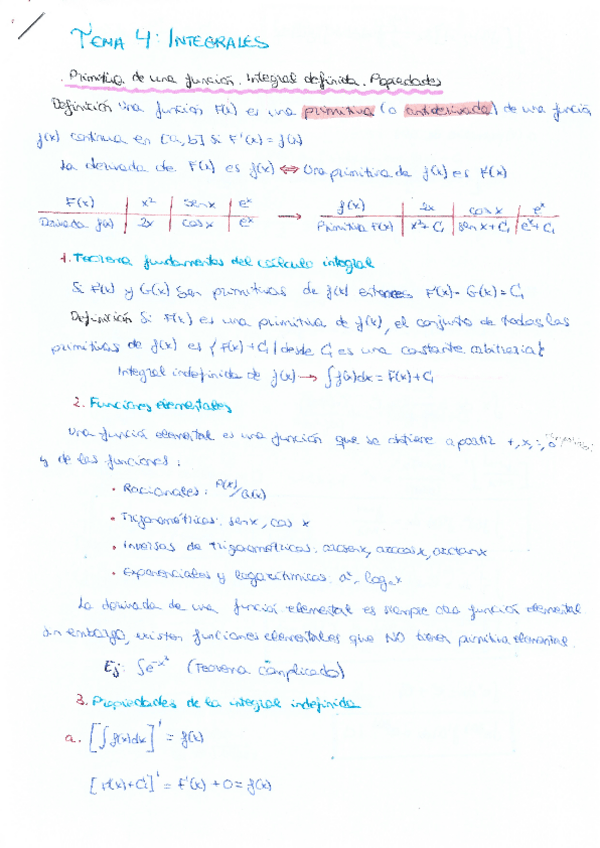 TEMA 4: INTEGRALES
. Primitiva de una función. Integral definida. Propiedades
Definición Una función F(x) es una primitiva (o antiderivada) de una función
f(x) continua en [a, b] si F'(x) = f(x)
La derivada de F(x) es f(x) ⇔ Una primitiva de f(x) es F(x)
F(x) | x² | sen x | eˣ
Derivada f(x) | 2x | cos x | eˣ
→
f(x) | 2x | cos x | eˣ
Primitiva F(x) | x² + C₁ | sen x + C₁ | eˣ + C₁
1. Teorema fundamental del cálculo integral
Si F(x) y G(x) son primitivas de f(x) entonces F(x) - G(x) = C₁
Definición Si F(x) es una primitiva de f(x), el conjunto de todas las
primitivas de f(x) es {F(x) + C₁ / C₁ es una constante arbitraria}
Integral indefinida de f(x) → ∫f(x)dx = F(x) + C₁
2. Funciones elementales
Una función elemental es una función que se obtiene a partir +, x, :, o
y de las funciones:
• Racionales: P(x)/Q(x)
• Trigonométricas: sen x, cos x
• Inversas de trigonométricas: arcsen x, arccos x, arctan x
• Exponenciales y logarítmicas: aˣ, logₐx
La derivada de una función elemental es siempre otra función elemental
sin embargo, existen funciones elementales que NO tienen primitiva elemental.
Ej: ∫e^-x² (Teorema complicado)
3. Propiedades de la integral indefinida
a. [∫f(x)dx]' = f(x)
[F(x) + C₁]' = F'(x) + 0 = f(x)